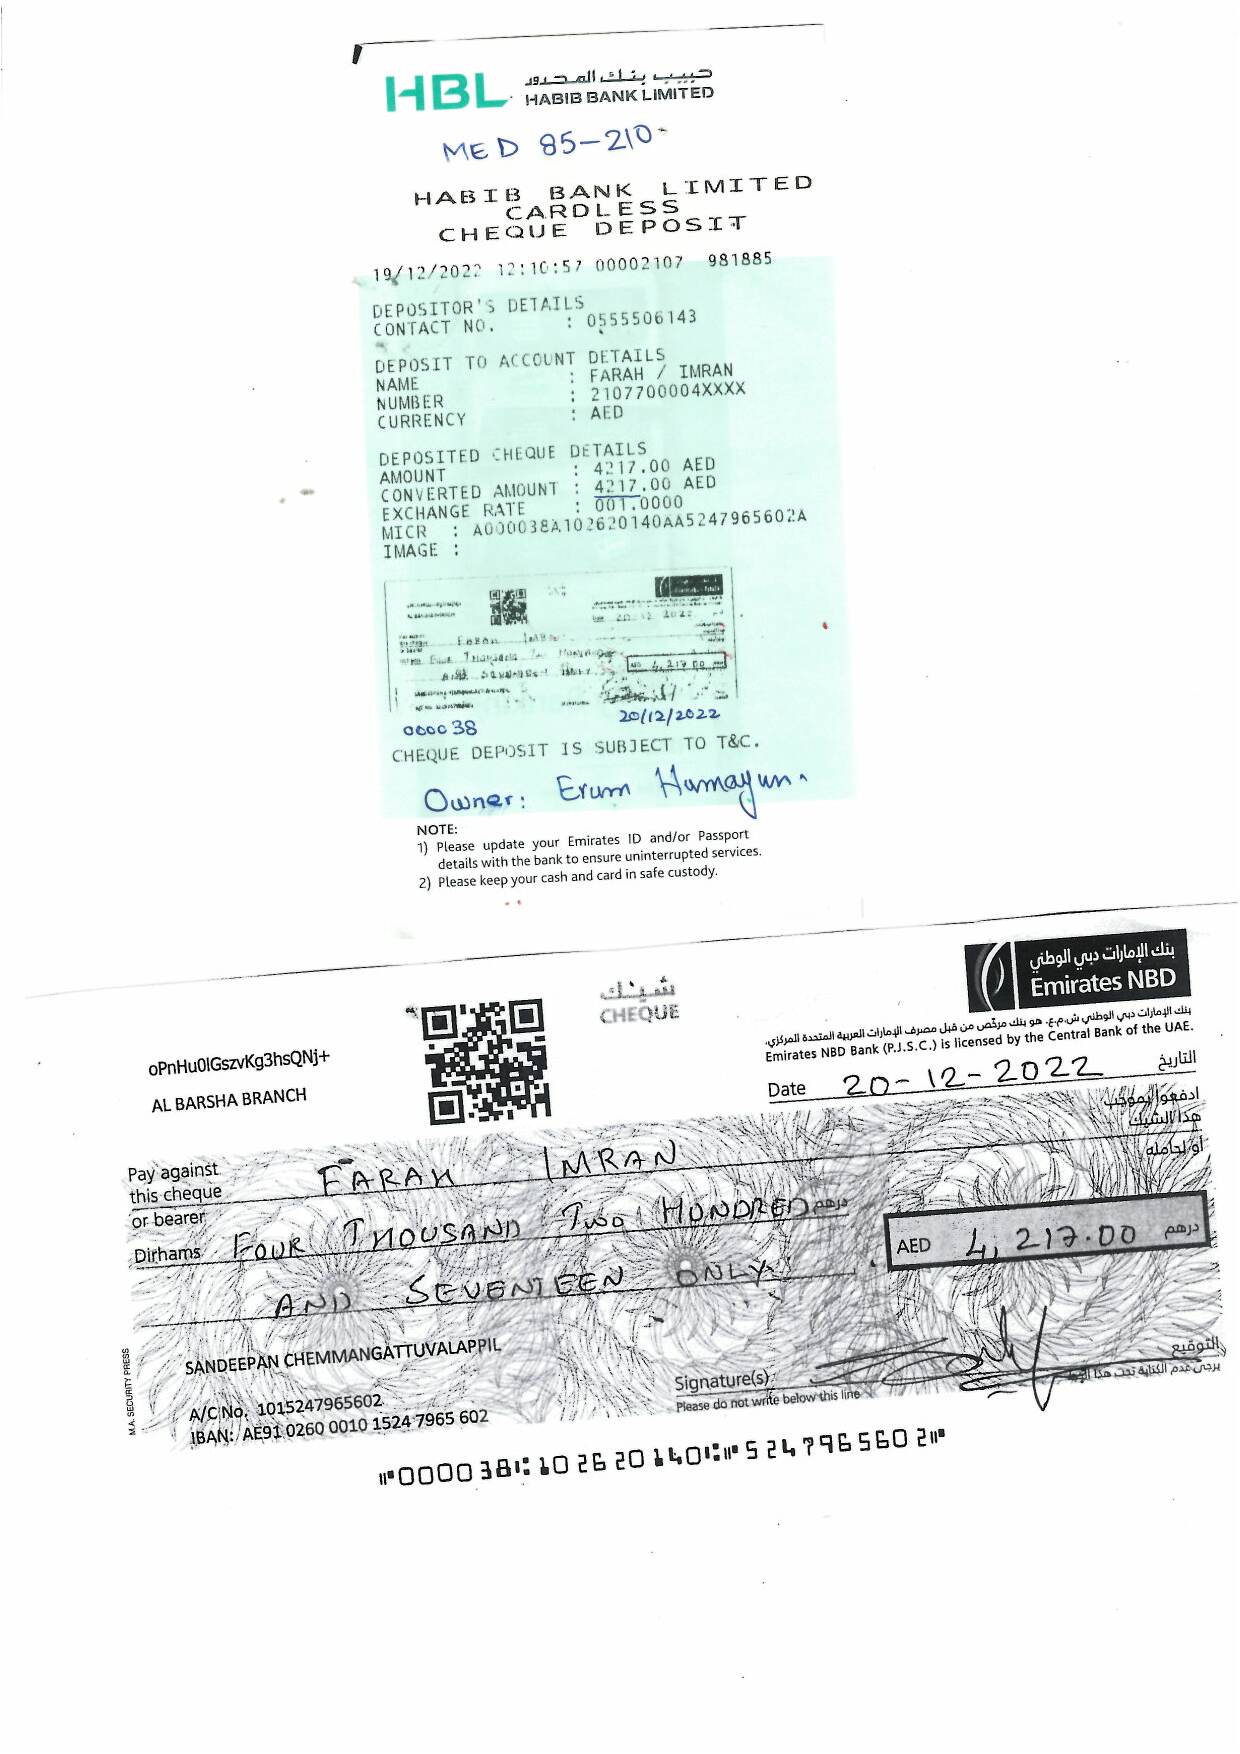 HBL حبيب بنك المحدود
HABIB BANK LIMITED
MED 85-210-
HABIB BANK LIMITED
CARDLESS
CHEQUE DEPOSIT
19/12/2022 12:10:57 00002107 981885
DEPOSITOR'S DETAILS
CONTACT NO. : 0555506143
DEPOSIT TO ACCOUNT DETAILS
NAME : FARAH / IMRAN
NUMBER : 2107700004XXXX
CURRENCY : AED
DEPOSITED CHEQUE DETAILS
AMOUNT : 4217.00 AED
CONVERTED AMOUNT : 4217.00 AED
EXCHANGE RATE : 001.0000
MICR : A000038A102620140AA5247965602A
IMAGE :
20 12 2022
FARAH IMRAN
FOUR THOUSAND TWO HUNDRED
4,217.00
000038 20/12/2022
CHEQUE DEPOSIT IS SUBJECT TO T&C.
Owner: Erum Humayun.
NOTE:
1) Please update your Emirates ID and/or Passport
details with the bank to ensure uninterrupted services.
2) Please keep your cash and card in safe custody.
بنك الإمارات دبي الوطني
Emirates NBD
شيك
CHEQUE
بنك الإمارات دبي الوطني ش.م.ع. هو بنك مرخّص من قبل مصرف الإمارات العربية المتحدة المركزي.
Emirates NBD Bank (P.J.S.C.) is licensed by the Central Bank of the UAE.
oPnHu0lGszvKg3hsQNj+
AL BARSHA BRANCH
Date 20-12-2022 التاريخ
ادفعوا بموجب
هذا الشيك
أو لحامله
Pay against
this cheque FARAH IMRAN
or bearer
Dirhams FOUR THOUSAND TWO HUNDRED درهم
AND SEVENTEEN ONLY
AED 4,217.00 درهم
SANDEEPAN CHEMMANGATTUVALAPPIL
A/C No. 1015247965602
IBAN: AE91 0260 0010 1524 7965 602
Signature(s) التوقيع
Please do not write below this line يرجى عدم الكتابة تحت هذا الخط
M.A. SECURITY PRESS
⑈000038⑆102620140⑆⑈5247965602⑈